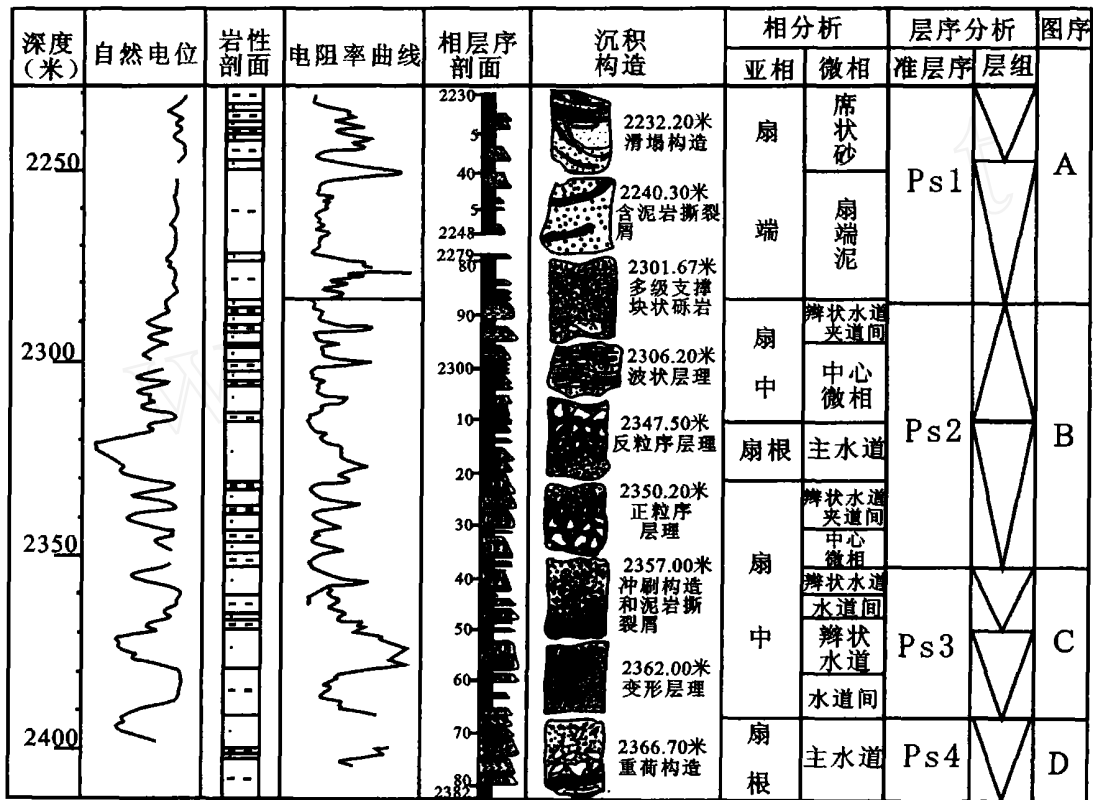 深度
(米)
自然电位
岩性
剖面
电阻率曲线
相层序
剖面
沉积
构造
相分析
亚相
微相
层序分析
准层序
层组
图序
2250
2300
2350
2400
2230
5
40
5
2248
2279
80
90
2300
10
20
30
40
50
60
70
80
2382
2232.20米
滑塌构造
2240.30米
含泥岩撕裂
屑
2301.67米
多级支撑
块状砾岩
2306.20米
波状层理
2347.50米
反粒序层理
2350.20米
正粒序
层理
2357.00米
冲刷构造
和泥岩撕
裂屑
2362.00米
变形层理
2366.70米
重荷构造
扇
端
扇
中
扇根
扇
中
扇
根
席
状
砂
扇
端
泥
辫状水道
夹道间
中心
微相
主水道
辫状水道
夹道间
中心
微相
辫状水道
水道间
辫状
水道
水道间
主水道
Ps1
Ps2
Ps3
Ps4
A
B
C
D